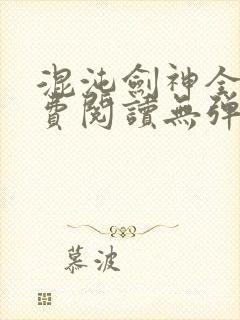 混沌劍神全
費閱讀無彈
慕波